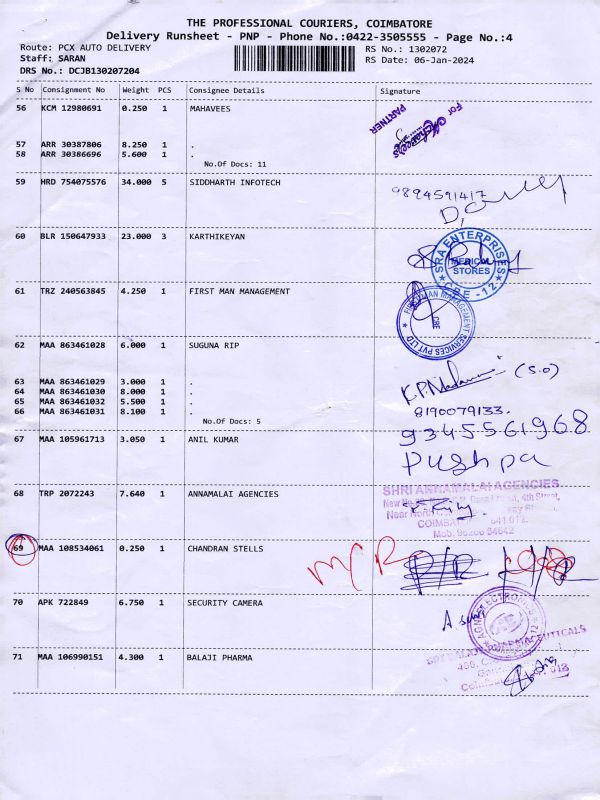 THE PROFESSIONAL COURIERS, COIMBATORE
Delivery Runsheet - PNP - Phone No.:0422-3505555 - Page No.:4
Route: PCX AUTO DELIVERY RS No.: 1302072
Staff: SARAN RS Date: 06-Jan-2024
DRS No.: DCJB130207204
S No Consignment No Weight PCS Consignee Details Signature
56 KCM 12980691 0.250 1 MAHAVEES
For Mahavees
PARTNER
57 ARR 30387806 8.250 1 .
58 ARR 30386696 5.600 1 .
No.Of Docs: 11
59 HRD 754075576 34.000 5 SIDDHARTH INFOTECH
9894591417
60 BLR 150647933 23.000 3 KARTHIKEYAN
SRA ENTERPRISES
MEDICAL
STORES
CBE -12
61 TRZ 240563845 4.250 1 FIRST MAN MANAGEMENT
FIRST MAN MANAGEMENT SERVICES PVT LTD
CBE
62 MAA 863461028 6.000 1 SUGUNA RIP
63 MAA 863461029 3.000 1 .
64 MAA 863461030 8.000 1 .
65 MAA 863461032 5.500 1 .
66 MAA 863461031 8.100 1 .
No.Of Docs: 5
(S.O)
8190079133.
67 MAA 105961713 3.050 1 ANIL KUMAR
9345561968
Pushpa
68 TRP 2072243 7.640 1 ANNAMALAI AGENCIES
SHRI ANNAMALAI AGENCIES
4th Street,
Near North
COIMBATORE 641 012.
Mob: 95266 64642
69 MAA 108534061 0.250 1 CHANDRAN STELLS
70 APK 722849 6.750 1 SECURITY CAMERA
71 MAA 106990151 4.300 1 BALAJI PHARMA
SRI BALAJI PHARMACEUTICALS